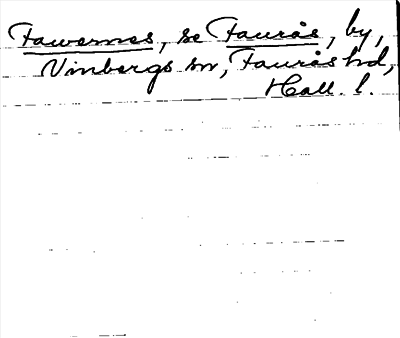 Fawernes, se Faurås, by,
Vinbergs sn, Faurås hd,
Hall. l.